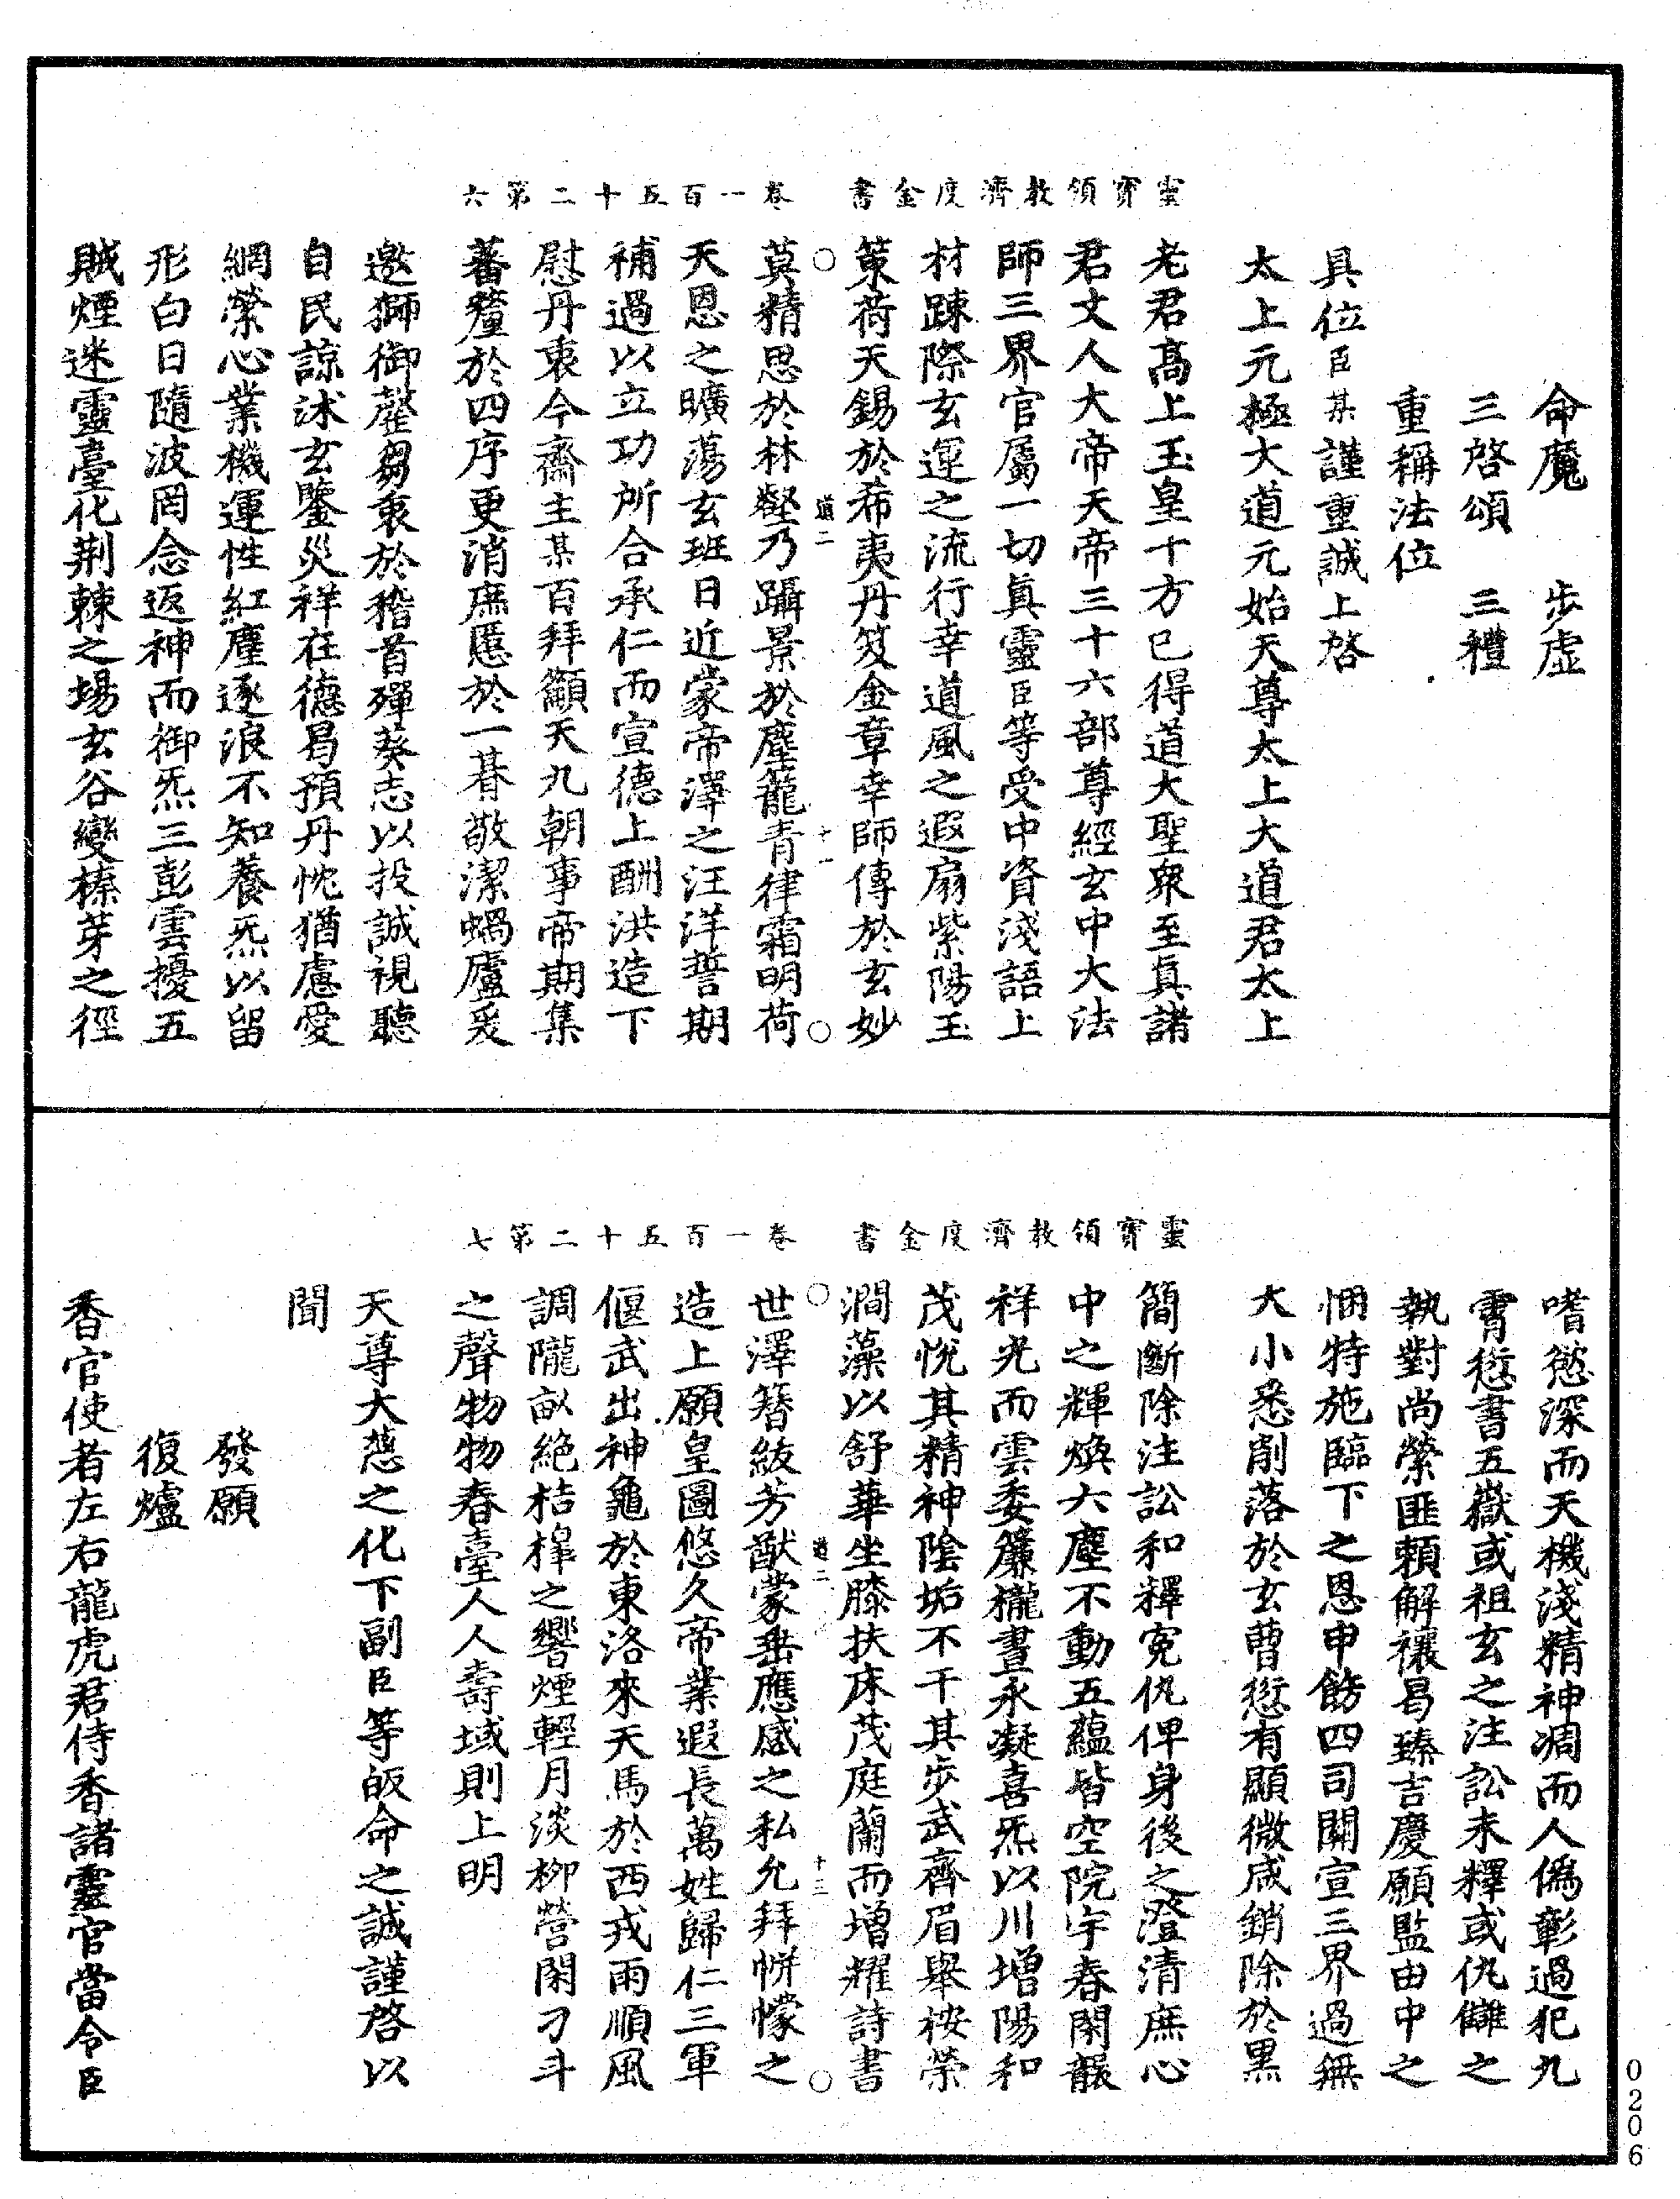 靈寶領教濟度金書　卷一百五十二第六
命魔　步虛
三啓頌　三禮
重稱法位
具位臣某謹重誠上啓
太上元極大道元始天尊太上大道君太上
老君高上玉皇十方已得道大聖衆至眞諸
君丈人大帝天帝三十六部尊經玄中大法
師三界官屬一切眞靈臣等受中資淺語上
材踈際玄運之流行幸道風之遐扇紫陽玉
策荷天錫於希夷丹笈金章幸師傳於玄妙
道二　十一
莫精思於林壑乃躡景於塵籠青律霜明荷
天恩之曠蕩玄班日近蒙帝澤之汪洋誓期
補過以立功所合承仁而宣德上酬洪造下
慰丹衷今齋主某百拜籲天九朝事帝期集
蕃釐於四序更消庶慝於一朞敬潔蝸廬爰
邀獅御罄芻衷於稽首殫葵志以投誠視聽
自民諒沭玄鑒災祥在德曷預丹忱猶慮愛
網縈心業機運性紅塵逐浪不知養炁以留
形白日隨波罔念返神而御炁三彭雲擾五
賊煙迷靈臺化荆棘之場玄谷變榛芽之徑
靈寶領教濟度金書　卷一百五十二第七
嗜慾深而天機淺精神凋而人僞彰過犯九
霄愆書五嶽或祖玄之注訟未釋或仇讎之
執對尚縈匪賴解禳曷臻吉慶願監由中之
悃特施臨下之恩申飭四司關宣三界過無
大小悉削落於玄曹愆有顯微咸銷除於黑
簡斷除注訟和釋寃仇俾身後之澄清庶心
中之輝煥六塵不動五蘊皆空院宇春閑靄
祥光而雲委簾櫳晝永凝喜炁以川增陽和
茂悅其精神陰垢不干其步武齊眉舉桉榮
澗藻以舒華坐膝扶床茂庭蘭而增耀詩書
道二　十二
世澤簪紱芳猷蒙垂應感之私允拜帡幪之
造上願皇圖悠久帝業遐長萬姓歸仁三軍
偃武出神龜於東洛來天馬於西戎雨順風
調隴畝絕桔槔之響煙輕月淡柳營閑刁斗
之聲物物春臺人人壽域則上明
天尊大慈之化下副臣等皈命之誠謹啓以
聞
發願
復爐
香官使者左右龍虎君侍香諸靈官當令臣
0206